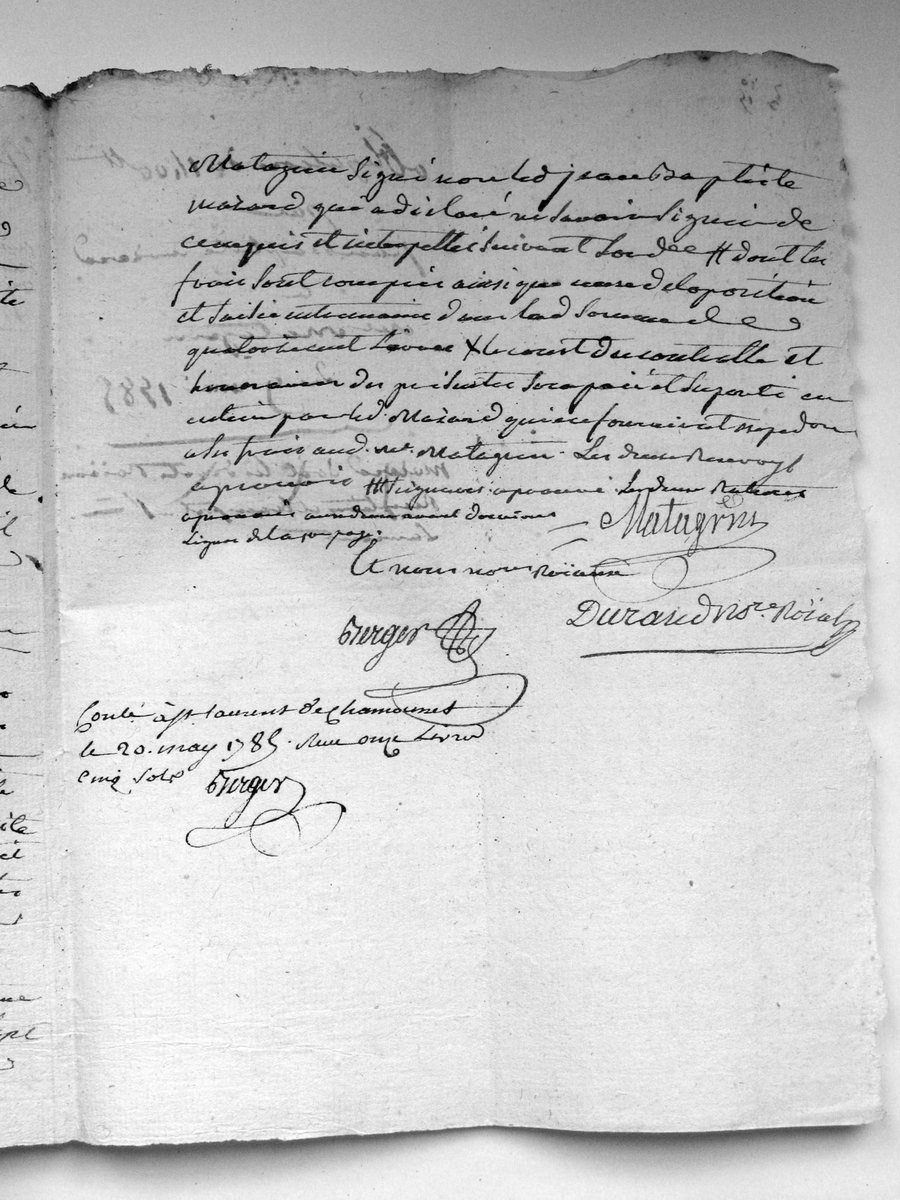 Matagrin signé non led jean Baptiste
mazard qui a déclaré ne savoir signer de
ce enquis et interpellé suivant l'ordce # dont les
frais sont compris ainsi que ceux de loposition
et saisie entre mains dans lad somme de
quatorze cent livres X le cout du controlle et
honoraires des présentes sera paié et suporté en
entier par led. Mazard qui en fournira expedon
a ses frais aud. sr. Matagrin. Les deux Renvoys
aprouvés ### signeurs aprouvé. Les deux Ratures
aprouvés
lignes de la page.
Matagrin
Et nous nores Roïaux
Berger
Durand Nore. Roial
Conlé à St. Laurent de Chamousset
le 20. may 1785. Reçu onze Livres
cinq sols
Berger